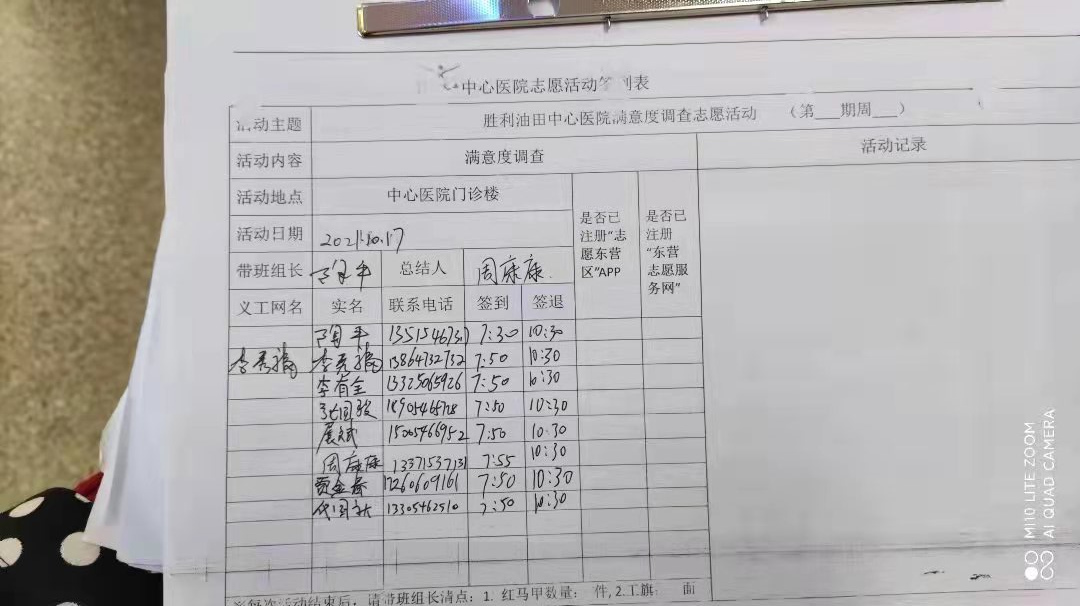 中心医院志愿活动签到表
活动主题 胜利油田中心医院满意度调查志愿活动 (第___期周___)
活动内容 满意度调查 活动记录
活动地点 中心医院门诊楼
是否已注册"志愿东营区"APP
是否已注册"东营志愿服务网"
活动日期 2021.10.17
带班组长 陶平 总结人 周康康
义工网名 实名 联系电话 签到 签退
陶平 1351546731 7:30 10:30
李秀 李秀 13864732732 7:50 10:30
李有全 13325065926 7:50 10:30
张国 7:50 10:30
展斌 15005466952 7:50 10:30
周康康 13371537131 7:55 10:30
贾金 17260609161 7:50 10:30
代国 13305462510 7:50 10:30
※每次活动结束后,请带班组长清点:1. 红马甲数量: 件,2.工旗: 面
MI 10 LITE ZOOM
AI QUAD CAMERA